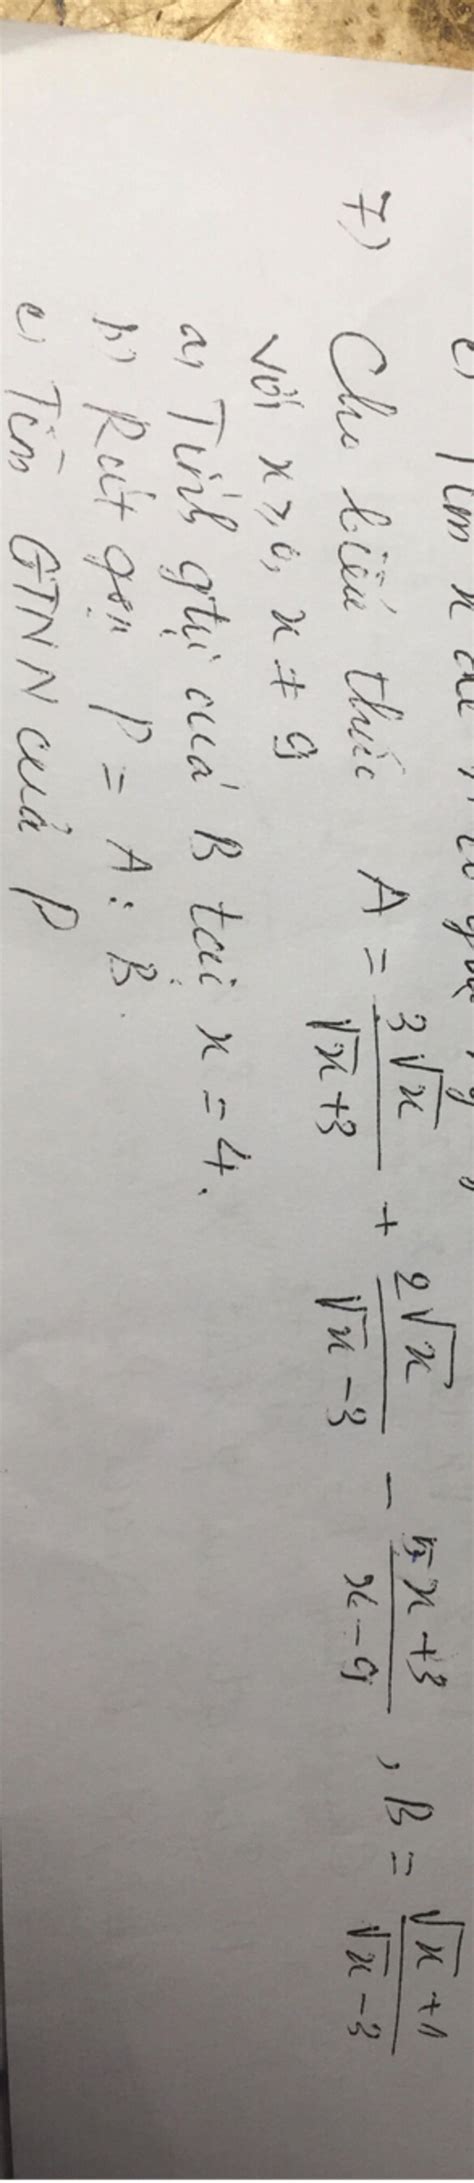 c) Tìm x để
7.) Cho biểu thức A = \frac{3\sqrt{x}}{\sqrt{x}+3} + \frac{2\sqrt{x}}{\sqrt{x}-3} - \frac{5x+3}{x-9}, B = \frac{\sqrt{x}+1}{\sqrt{x}-3}
với x ≥ 0, x ≠ 9
a) Tính gtrị của B tại x = 4.
b) Rút gọn P = A : B.
c) Tìm GTNN của P